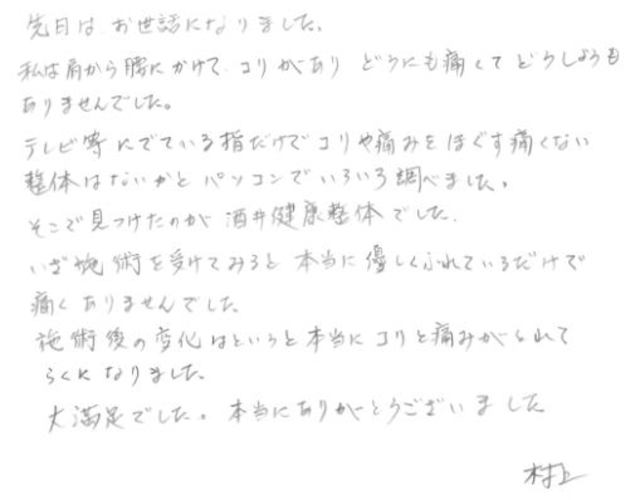 先日は、お世話になりました。
私は肩から腰にかけて、コリがあり どうにも痛くて どうしようも
ありませんでした。
テレビ等にでている指だけでコリや痛みをほぐす痛くない
整体はないかと パソコンでいろいろ調べました。
そこで見つけたのが 酒井健康整体でした。
いざ施術を受けてみると 本当に優しくふれているだけで
痛くありませんでした。
施術後の変化はというと本当にコリと痛みがとれて
らくになりました。
大満足でした。本当にありがとうございました
村上